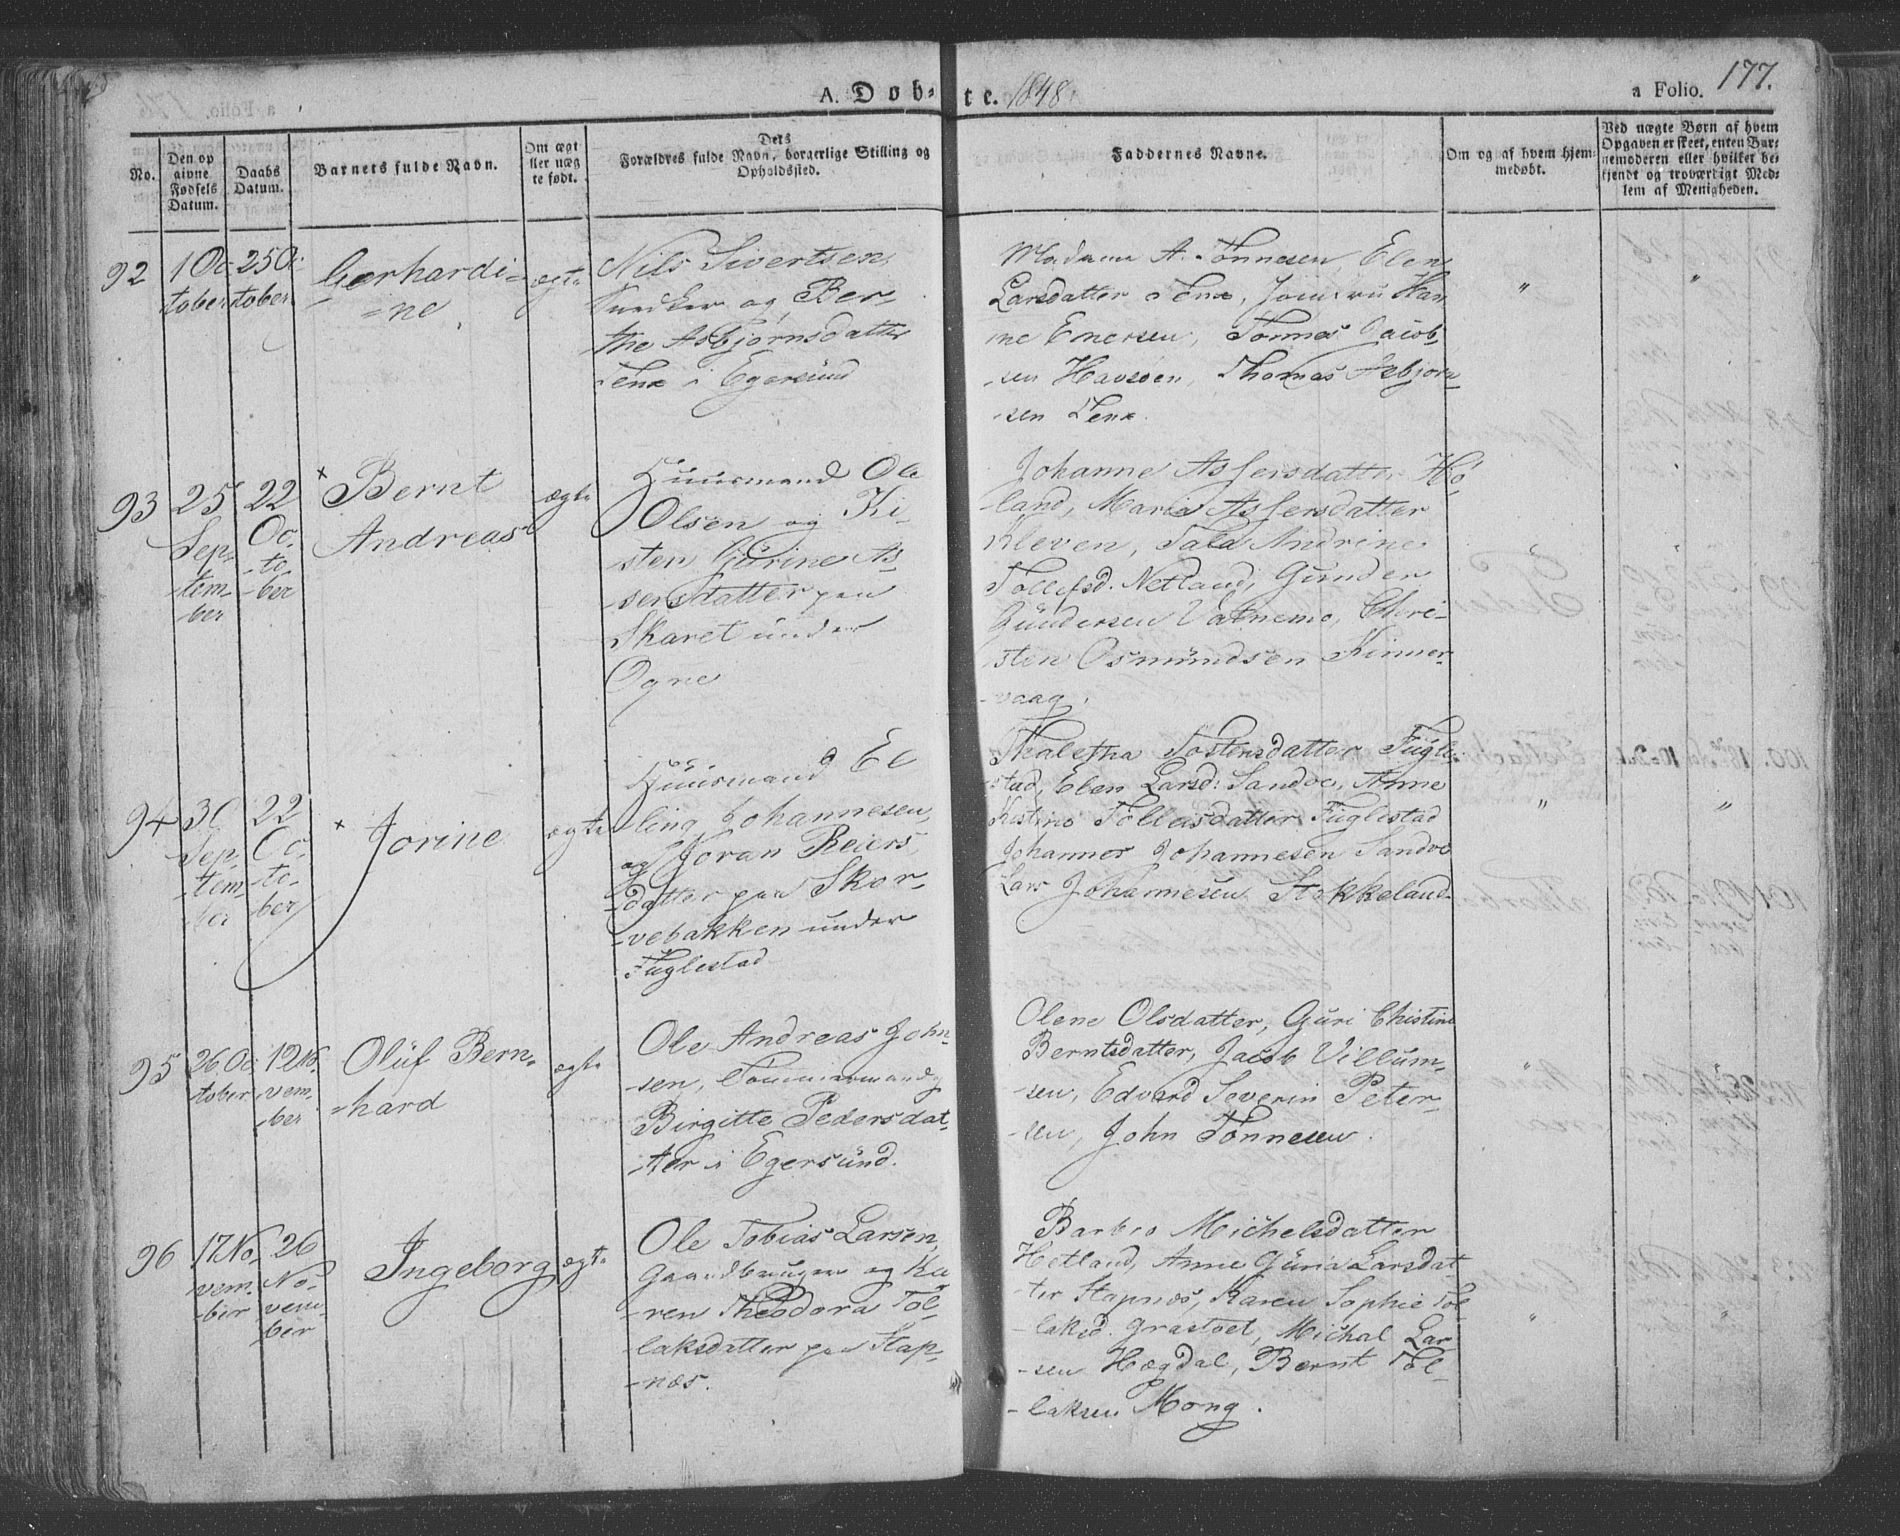 A. Døb-te. 1848.
a Folio. 177.
No.
Den op
givne
Fødsels
Datum.
Daabs
Datum.
Barnets fulde Navn.
Om ægt
ller uæg
te født.
Dets
Forældres fulde Navn, borgerlige Stilling og
Opholdssted.
Faddernes Navne.
Om og af hvem hjem-
medøbt.
Ved uægte Børn af hvem
Opgaven er skeet, enten Bar-
nemoderen eller hvilket be-
kjendt og troværdigt Med-
lem af Menigheden.
92
1 Oc
tober
25 Oc
tober
Gerhardi-
-ne
ægte
Nils Sivertsen,
Snedker og Ber-
the Asbjørnsdatter
i Egersund
Madame A. Tønnesen, Elen
Larsdatter, Jomfru Han
ne Emersen, Tønnes Jacob-
sen Havsøen, Thomas Asbjørn-
-sen
"
"
93
25
Sep-
-tem-
ber
22
Oc-
-to-
-ber
× Bernt
Andreas
ægte
Huusmand Ole
Olsen og Ki-
-sten Gurine As-
-sersdatter paa
Skaret under
Ogne
Johanne Assersdatter Hø-
land, Maria Assersdatter
Kleven, Tala Andrine
Tollefsd. Netland, Gunder
Gundersen Vatnemo, Chri-
-sten Osmundsen Kinner-
-vaag.
94
30
Sep-
-tem-
-ber
22
Oc-
-to-
-ber
× Jorine
ægte
Huusmand El-
-ling Johannesen,
og Joran Reiers-
-datter paa Skor-
-vebakken under
Fuglestad
Thaletha Tostensdatter Fugle-
-stad, Elen Larsd: Sandve, Anne
Kistine Tolleisdatter Fuglestad
Johannes Johannesen Sandve
Lars Johannesen Stokkeland
"
"
95
26 Oc
tober
12 No
vem-
-ber
Oluf Bern-
-hard
ægte
Ole Andreas John-
-sen, Tømmermand,
Birgitte Pedersdat-
-ter i Egersund.
Olene Olsdatter, Guri Christine
Berntsdatter, Jacob Villum-
-sen, Edvard Severin Peter-
-sen, John Tønnesen.
"
96
17 No-
vem-
-ber
26
No-
vem-
-ber
Ingeborg
ægte
Ole Tobias Larsen,
Gaardbruger og Ka
-ren Theodora Tol-
laksdatter paa Stap-
-næs.
Barbro Michelsdatter
Hetland, Anne Guria Larsdat-
-ter Stapnæs, Karen Sophie Tol
-laksd. Grastvet, Michal Lar
-sen Hægdal, Bernt Tol-
-laksen Mong.
"
"